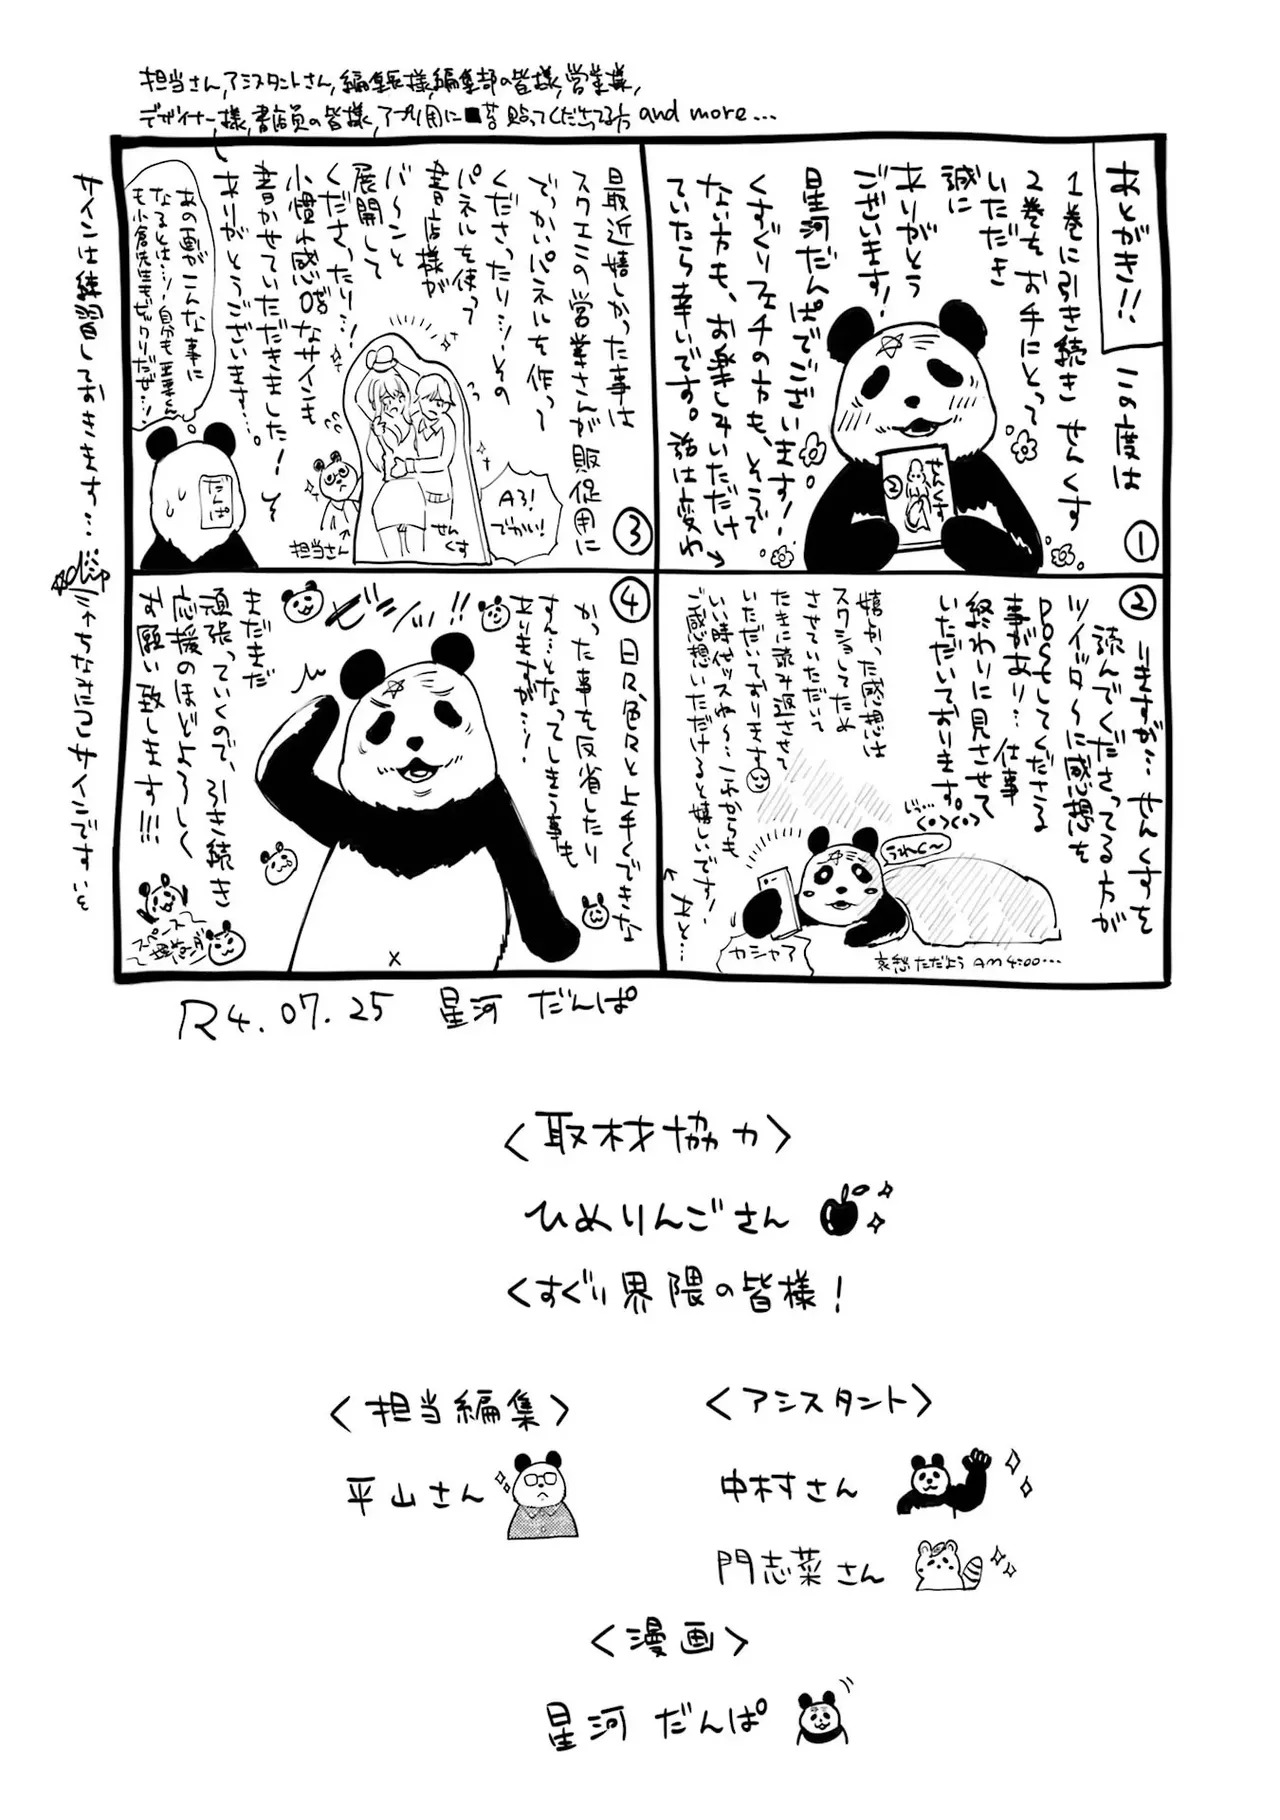 担当さん,アシスタントさん,編集長様,編集部の皆様,営業様,
デザイナー様,書店員の皆様,アプリ用に
貼ってくださってる方 and more...
あとがき!!
この度は
1巻に引き続き せんくす
2巻をお手にとって
いただき
誠に
ありがとう
ございます!
星河だんぱでございます!
くすぐりフェチの方も、そうで
ない方も、お楽しみいただけ
ていたら幸いです。話は変わ→
せんくす
②
①
②
→りますが… せんくすを
読んでくださってる方が
ツイッター〜に感想を
POSTしてくださる
事があり… 仕事
終わりに見させて
いただいております。
嬉しかった感想は
スクショしてたね
させていただいて
たまに読み返させて
いただいております
いい時代ッスね〜…これからも
ご感想いただけると嬉しいです!
←あと…
うれし〜
カシャア
哀愁ただよう AM4:00…
最近嬉しかった事は
スクエニの営業さんが販促用に
でっかいパネルを作って
くださったり…!その
パネルを使って
書店様が
バ〜ンと
展開して
くださったり…!
小慣れ感 なサインも
書かせていただきました!
ありがとうございます…
A3!
でかい!
せんくす
担当さん
③
あの画がこんな事に
なるとは…!自分も亜葉くん
も小倉先生もビックリだぜ…!
だんぱ
④
日々、色々と上手くできな
かった事を反省したり
すん…となってしまう事も
ありますが…!
ビシッ!!
まだまだ
頑張っていくので、引き続き
応援のほどよろしく
お願い致します!!!
スペース
埋めパンダ
サインは練習しておきます…
←ちなみにコレサインです
R4.07.25 星河 だんぱ
〈取材協力〉
ひめりんごさん
くすぐり界隈の皆様!
〈担当編集〉
平山さん
〈アシスタント〉
中村さん
門志菜さん
〈漫画〉
星河 だんぱ